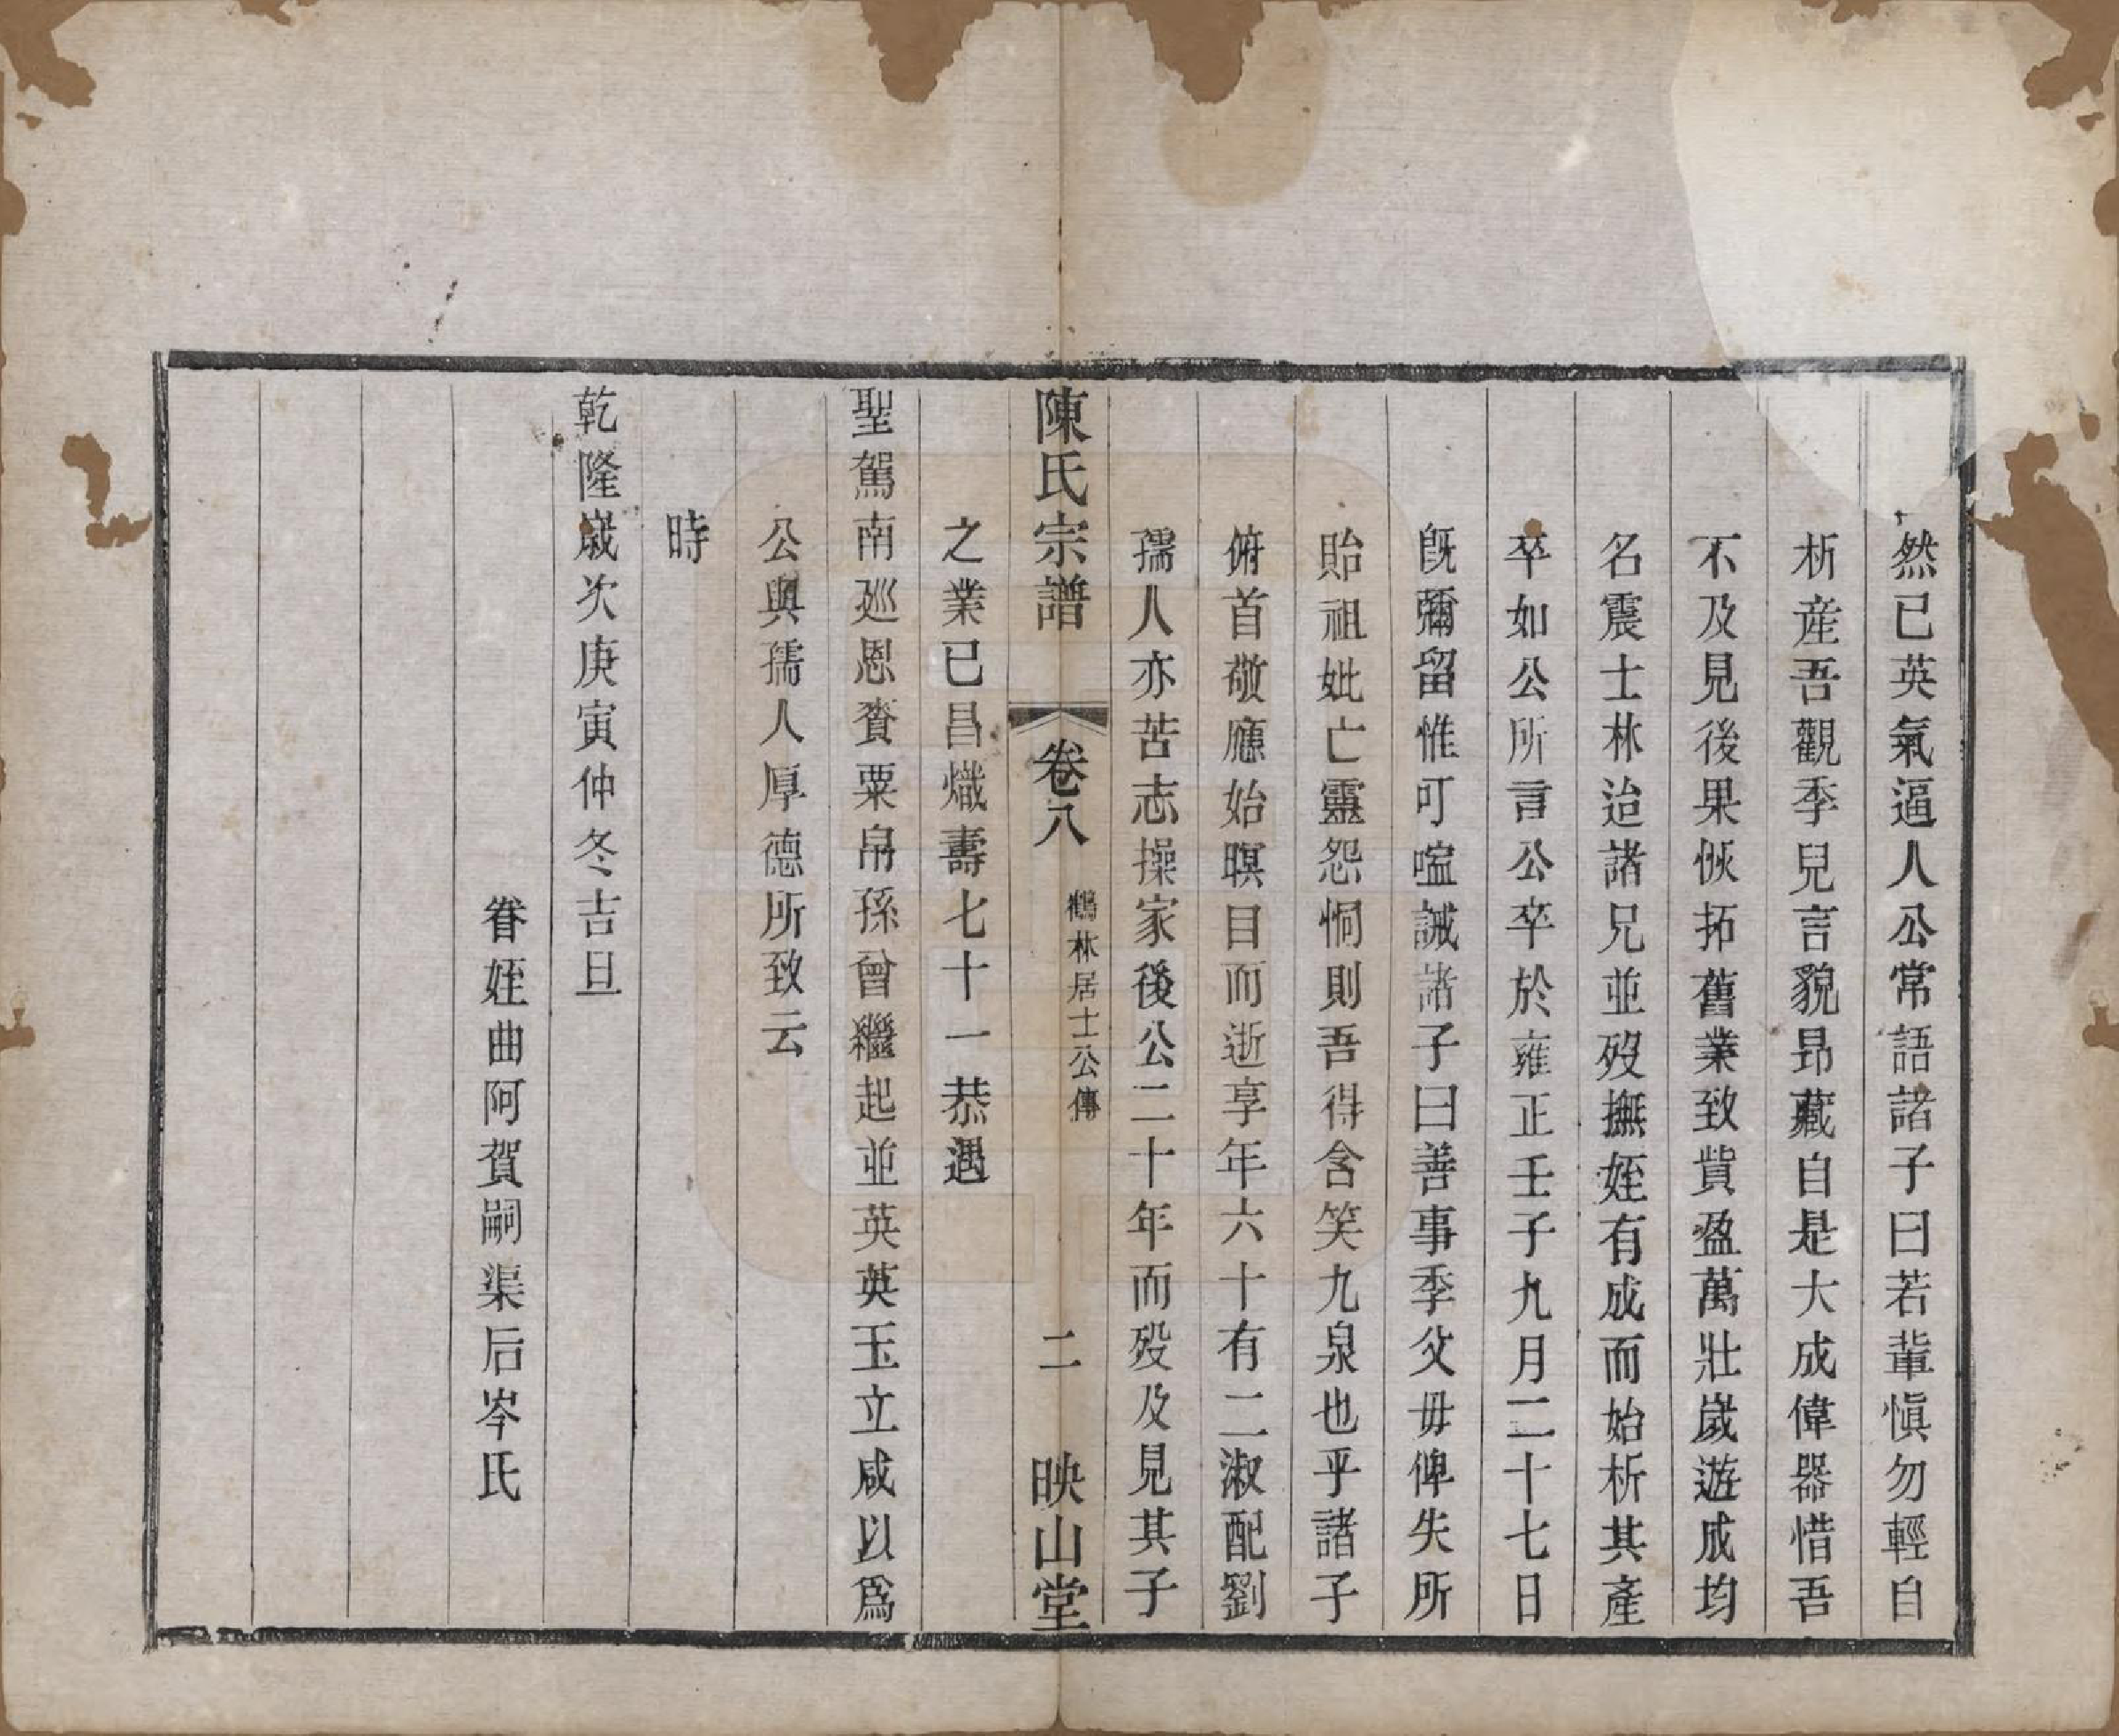 然已英氣逼人公常語諸子曰若輩愼勿輕自
析産吾觀季兒言貌昂藏自是大成偉器惜吾
不及見後果恢拓舊業致貲盈萬壯歲遊成均
名震士林迨諸兄並歿撫姪有成而始析其產
卒如公所言公卒於雍正壬子九月二十七日
旣彌留惟可嗌誡諸子曰善事季父毋俾失所
貽祖妣亡靈怨恫則吾得含笑九泉也乎諸子
俯首敬應始暝目而逝享年六十有二淑配劉
孺人亦苦志操家後公二十年而歿及見其子
陳氏宗譜 卷八 鶴林居士公傳 二 映山堂
之業已昌熾壽七十一恭遇
聖駕南廵恩賚粟帛孫曾繼起並英英玉立咸以爲
公與孺人厚德所致云
時
乾隆歲次庚寅仲冬吉旦
眷姪曲阿賀嗣渠后岑氏